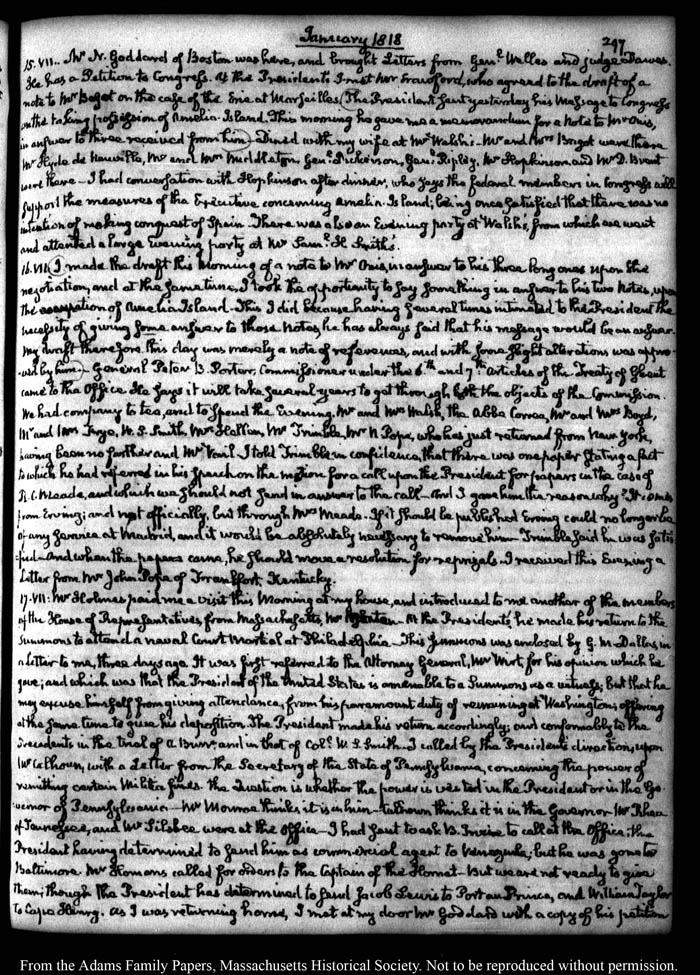 January 1818
297.
15. VII.. Mr. N. Goddard of Boston was here, and brought Letters from Genl. Welles and judge Dawes.
He has a Petition to Congress. At the Presidents I met Mr Crawford, who agreed to the draft of a
note to Mr Bagot on the case of the Erie at Marseilles (The President sent yesterday his Message to Congress
on the taking possession of Amelia Island. This morning he gave me a memorandum for a Note to Mr Onis,
in answer to three received from him) Dined with my wife at Mr Walsh's. Mr and Mrs Bagot were there
Mr Hyde de Neuville, Mr and Mrs Middleton, Genl. Dickinson, Genl. Ripley, Mr Hopkinson and Mr D. Brent
were there—I had conversation with Hopkinson after dinner, who says the federal members in Congress will
support the measures of the Executive concerning Amelia Island; being once satisfied that there was no
intention of making conquest of Spain. There was also an Evening party at Walsh's, from which we went
and attended a large Evening party at Mr Saml. H. Smith's.
16. VII. (I made the draft this morning of a note to Mr Onis, in answer to his three long ones upon the
negotiation, and at the same time, I took the opportunity to say something in answer to his two Notes, upon
the occupation of Amelia Island—This I did because having several times intimated to the President the
necessity of giving some answer to those Notes, he has always said that his message would be an answer.
My draft therefore this day was merely a note of references, and with some slight alterations was appro-
-ved by him.) General Peter B. Porter, Commissioner under the 6th. and 7th. Articles of the Treaty of Ghent
came to the Office. He says it will take several years to get through both the objects of the Commission.
We had company to tea, and to spend the Evening. Mr and Mrs Walsh, the Abbé Correa, Mr and Mrs Boyd,
Mr and Mrs Frye, W. S. Smith, Mr Hellen, Mr Trimble, Mr N Pope, who has just returned from New York,
having been no further and Mr Vail. I told Trimble in confidence, that there was one paper stating a fact
to which he had referred in his speech on the motion for a call upon the President for papers in the case of
R. C. Meade, and which we should not send in answer to the call—And I gave him the reason why. It comes
from Erving; and not officially, but through Mrs Meade. If it should be published Erving could no longer be
of any service at Madrid, and it would be absolutely necessary to remove him—Trimble said he was satis-
-fied—And when the papers came, he should move a resolution for reprisals. I received this Evening a
Letter from Mr John Pope of Frankfort, Kentucky.
17. VII: Mr Holmes paid me a visit this Morning at my house, and introduced to me another of the members
of the House of Representatives from Massachusetts, Mr At the Presidents, he made his return to the
Summons to attend a naval Court Martial at Philadelphia—This summons was enclosed by G. M. Dallas, in
a Letter to me, three days ago. It was first referred to the Attorney General, Mr Wirt for his opinion which he
gave; and which was that the President of the United States is amenable to a Summons as a witness; but that he
may excuse himself from giving attendance, from his paramount duty of remaining at Washington; offering
at the same time to give his deposition. The President made his return accordingly; and conformably to the
Precedents in the trial of A Burr, and in that of Coll. W. S. Smith—I called by the Presidents direction, upon
Mr Calhoun, with a Letter from the Secretary of the State of Pennsylvania, concerning the power of
remitting certain Militia fines. The Question is whether the power is vested in the President or in the Go-
-vernor of Pennsylvania—Mr Monroe thinks, it is in him—Calhoun thinks it is in the Governor—Mr Rhea
of Tennessee, and Mr Silsbee were at the Office—I had sent to ask B. Irvine to call at the Office; the
President having determined to send him as commercial agent to Venezuela; but he was gone to
Baltimore. Mr Homans called for orders to the Captain of the Hornet—But we are not ready to give
them; though the President has determined to send Jacob Lewis to Port au Prince, and William Taylor
to Cape Henry. As I was returning home, I met at my door Mr Goddard with a copy of his petition
From the Adams Family Papers, Massachusetts Historical Society. Not to be reproduced without permission.